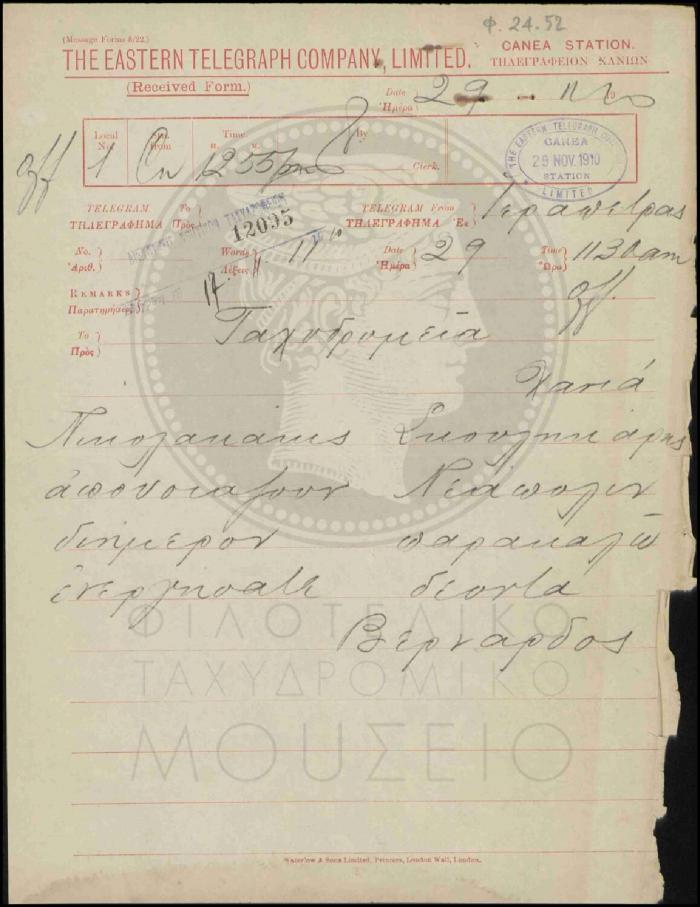 Φ. 24.52
(Message Forms 8/22.)
THE EASTERN TELEGRAPH COMPANY, LIMITED.
CANEA STATION.
ΤΗΛΕΓΡΑΦΕΙΟΝ ΧΑΝΙΩΝ
(Received Form.)
Date
Ἡμέρα
29 - 11
Local No.
Stn. from
Time
H. M.
By
Clerk.
1 Cn 1255pm
THE EASTERN TELEGRAPH
CANEA
29 NOV. 1910
STATION
LIMITED
TELEGRAM
ΤΗΛΕΓΡΑΦΗΜΑ
To
Πρὸς
12095
TELEGRAM From
ΤΗΛΕΓΡΑΦΗΜΑ Ἐκ
Ιεραπετρας
No.
Ἀριθ.
Words
Λέξεις
17
Date
Ἡμέρα
29
Time
Ὥρα
1130am
REMARKS
Παρατηρήσεις
To
Πρὸς
Ταχυδρομεία
Χανιά
Νικολακάκις Σκουληκάρης
ἀπουσιαζουν Νεάπολιν
διήμερον παρακαλῶ
ἐνεργήσατε δεοντα
Βερναρδος
ΦΙΛΟΤΕΛΙΚΟ
ΤΑΧΥΔΡΟΜΙΚΟ
ΜΟΥΣΕΙΟ
Waterlow & Sons Limited, Printers, London Wall, London.